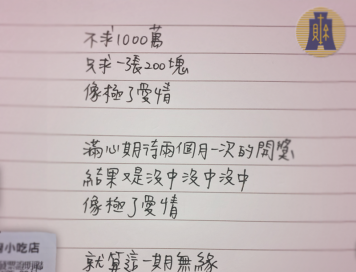 不求1000萬
只求一張200塊
像極了愛情
滿心期待兩個月一次的開獎
結果又是沒中沒中沒中
像極了愛情
就算這一期無緣
小吃店